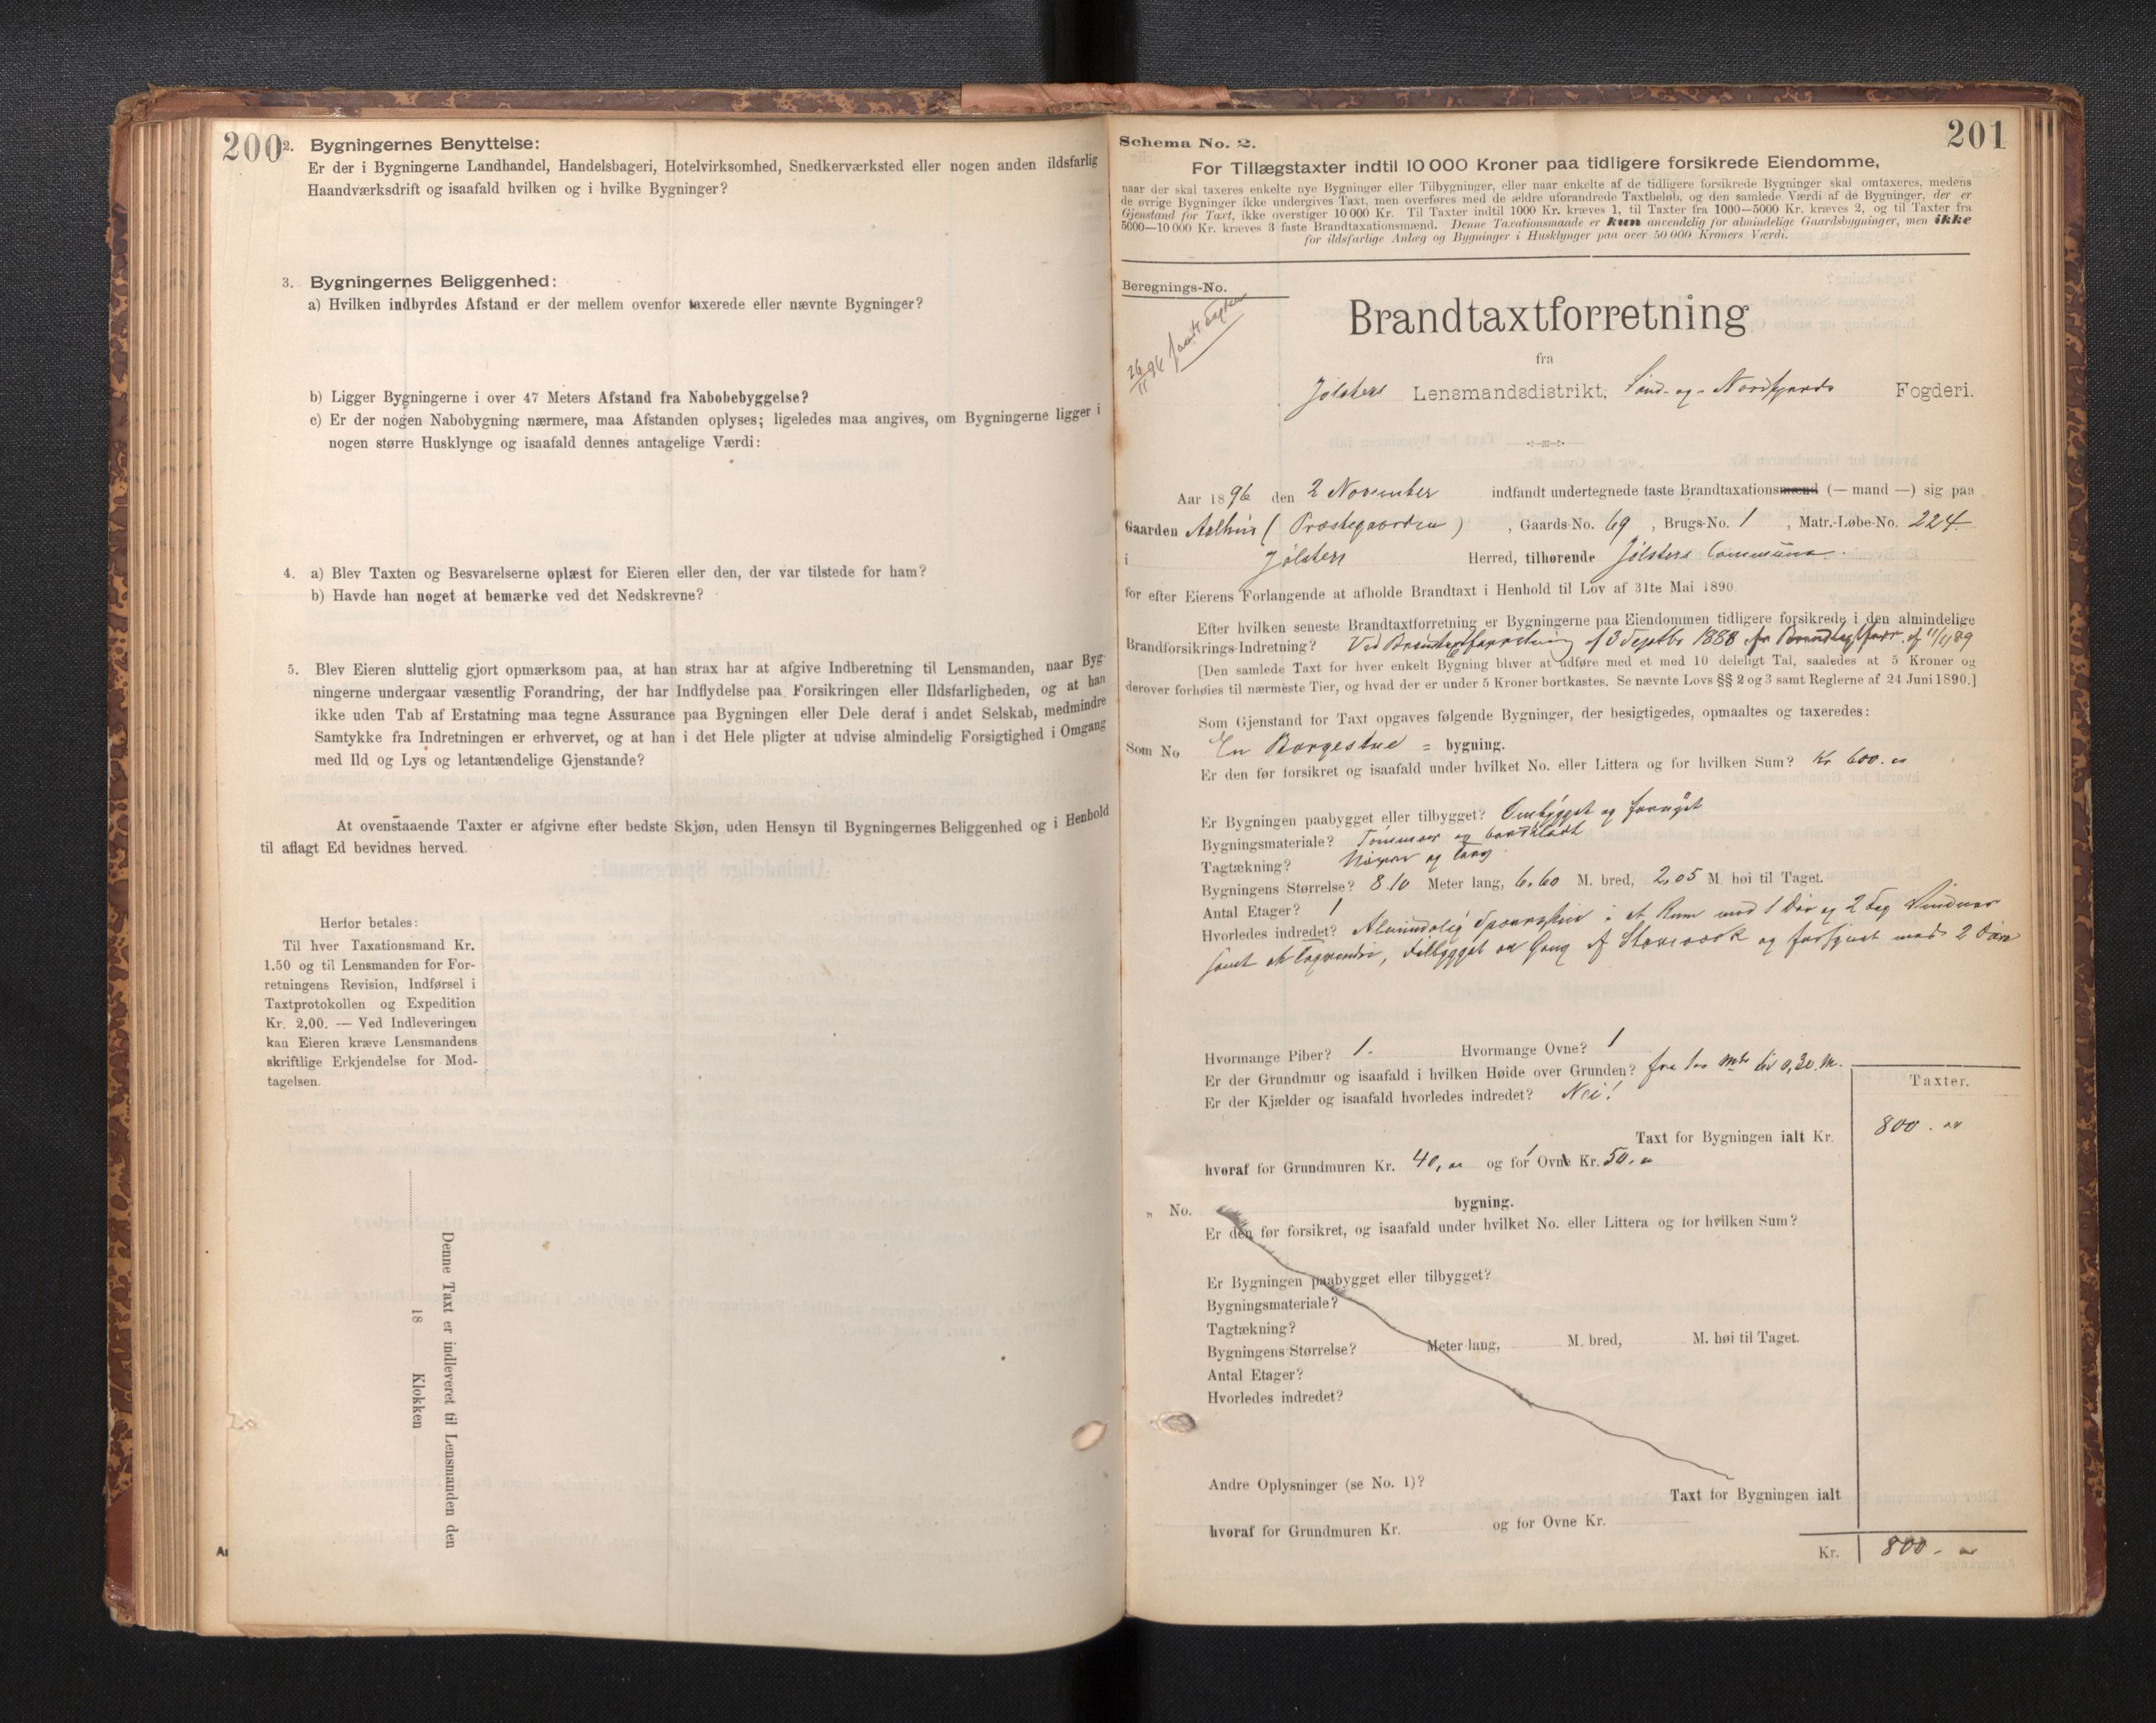 200
2. Bygningernes Benyttelse:
Er der i Bygningerne Landhandel, Handelsbageri, Hotelvirksomhed, Snedkerværksted eller nogen anden ildsfarlig
Haandværksdrift og isaafald hvilken og i hvilke Bygninger?
3. Bygningernes Beliggenhed:
a) Hvilken indbyrdes Afstand er der mellem ovenfor taxerede eller nævnte Bygninger?
b) Ligger Bygningerne i over 47 Meters Afstand fra Nabobebyggelse?
c) Er der nogen Nabobygning nærmere, maa Afstanden oplyses; ligeledes maa angives, om Bygningerne ligger i
nogen større Husklynge og isaafald dennes antagelige Værdi:
4. a) Blev Taxten og Besvarelserne oplæst for Eieren eller den, der var tilstede for ham?
b) Havde han noget at bemærke ved det Nedskrevne?
5. Blev Eieren sluttelig gjort opmærksom paa, at han strax har at afgive Indberetning til Lensmanden, naar Byg-
ningerne undergaar væsentlig Forandring, der har Indflydelse paa Forsikringen eller Ildsfarligheden, og at han
ikke uden Tab af Erstatning maa tegne Assurance paa Bygningen eller Dele deraf i andet Selskab, medmindre
Samtykke fra Indretningen er erhvervet, og at han i det Hele pligter at udvise almindelig Forsigtighed i Omgang
med Ild og Lys og letantændelige Gjenstande?
At ovenstaaende Taxter er afgivne efter bedste Skjøn, uden Hensyn til Bygningernes Beliggenhed og i Henhold
til aflagt Ed bevidnes herved.
Herfor betales:
Til hver Taxationsmand Kr.
1.50 og til Lensmanden for For-
retningens Revision, Indførsel i
Taxtprotokollen og Expedition
Kr. 2.00. — Ved Indleveringen
kan Eieren kræve Lensmandens
skriftlige Erkjendelse for Mod-
tagelsen.
Denne Taxt er indleveret til Lensmanden den
18 Klokken
201
Schema No. 2.
For Tillægstaxter indtil 10 000 Kroner paa tidligere forsikrede Eiendomme,
naar der skal taxeres enkelte nye Bygninger eller Tilbygninger, eller naar enkelte af de tidligere forsikrede Bygninger skal omtaxeres, medens
de øvrige Bygninger ikke undergives Taxt, men overføres med de ældre uforandrede Taxtbeløb, og den samlede Værdi af de Bygninger, der er
Gjenstand for Taxt, ikke overstiger 10 000 Kr. Til Taxter indtil 1000 Kr. kræves 1, til Taxter fra 1000—5000 Kr. kræves 2, og til Taxter fra
5000—10 000 Kr. kræves 3 faste Brandtaxationsmænd. Denne Taxationsmaade er kun anvendelig for almindelige Gaardsbygninger, men ikke
for ildsfarlige Anlæg og Bygninger i Husklynger paa over 50 000 Kroners Værdi.
Beregnings-No.
26/11 96
Brandtaxtforretning
fra
Jølsters Lensmandsdistrikt, Sønd- og Nordfjords Fogderi.
Aar 1896 den 2 November indfandt undertegnede faste Brandtaxationsmænd (— mand —) sig paa
Gaarden Aalhus (Præstegaarden), Gaards-No. 69, Brugs-No. 1, Matr.-Løbe-No. 224
i Jølster Herred, tilhørende Jølsters Commune.
for efter Eierens Forlangende at afholde Brandtaxt i Henhold til Lov af 31te Mai 1890.
Efter hvilken seneste Brandtaxtforretning er Bygningerne paa Eiendommen tidligere forsikrede i den almindelige
Brandforsikrings-Indretning? Ved Brandtaxtforretning af 3 Septbr 1888 Brandtaxtforr. af 11/1 89
[Den samlede Taxt for hver enkelt Bygning bliver at udføre med et med 10 deleligt Tal, saaledes at 5 Kroner og
derover forhøies til nærmeste Tier, og hvad der er under 5 Kroner bortkastes. Se nævnte Lovs §§ 2 og 3 samt Reglerne af 24 Juni 1890.]
Som Gjenstand for Taxt opgaves følgende Bygninger, der besigtigedes, opmaaltes og taxeredes:
Som No En Borgestue = bygning.
Er den før forsikret og isaafald under hvilket No. eller Littera og for hvilken Sum? Kr 600.
Er Bygningen paabygget eller tilbygget? Ombygget og forøget
Bygningsmateriale? Tømmer og bordklædt
Tagtækning? Næver og Torv
Bygningens Størrelse? 8.10 Meter lang, 6.60 M. bred, 2,05 M. høi til Taget.
Antal Etager? 1
Hvorledes indredet? Almindelig i et Rum med 1 Dør og 2 Fag Vinduer
samt, tilbygget en Gang af Stavværk og forsynet med 2 Døre
Hvormange Piber? 1. Hvormange Ovne? 1
Er der Grundmur og isaafald i hvilken Høide over Grunden? fra til 0,30 M.
Er der Kjælder og isaafald hvorledes indredet? Nei!
Taxter.
Taxt for Bygningen ialt Kr. 800.
hvoraf for Grundmuren Kr. 40, og for Ovne Kr. 50.
„ No. bygning.
Er den før forsikret, og isaafald under hvilket No. eller Littera og for hvilken Sum?
Er Bygningen paabygget eller tilbygget?
Bygningsmateriale?
Tagtækning?
Bygningens Størrelse? Meter lang, M. bred, M. høi til Taget.
Antal Etager?
Hvorledes indredet?
Andre Oplysninger (se No. 1)?
Taxt for Bygningen ialt
hvoraf for Grundmuren Kr. og for Ovne Kr.
Kr. 800.